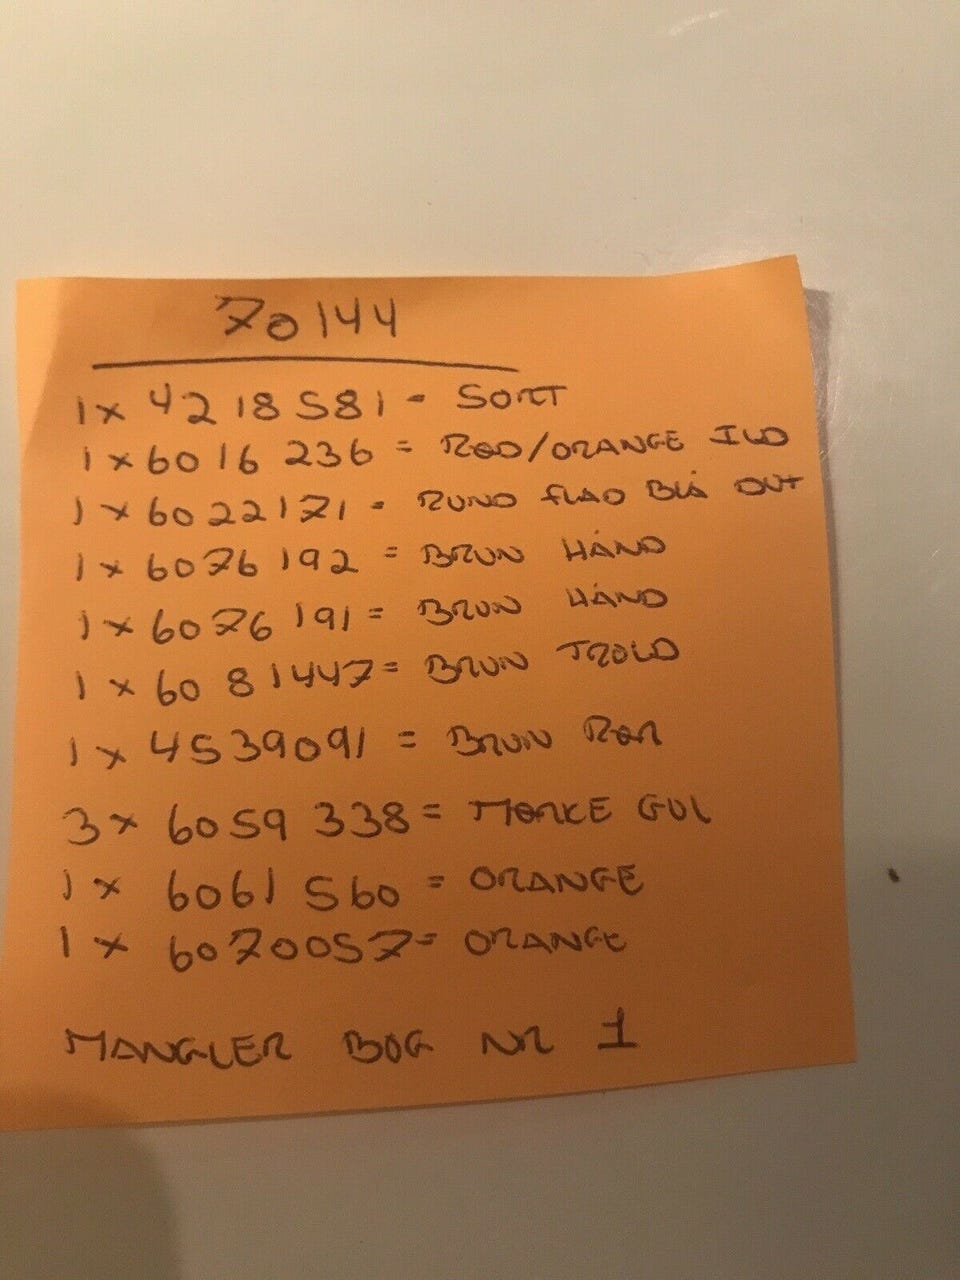 70144
1x 4218581 - SORT
1x6016 236 = RØD/ORANGE ILD
1x6022171 - RUND FLAD BLÅ
1x 6076192 = BRUN HÅND
1x6076 191 = BRUN HÅND
1x 6081447= BRUN TROLD
1x 4539091 = BRUN RØR
3x 6059 338= MØRKE GUL
1x 6061 560 = ORANGE
1x 6070057= ORANGE
MANGLER BOG NR 1